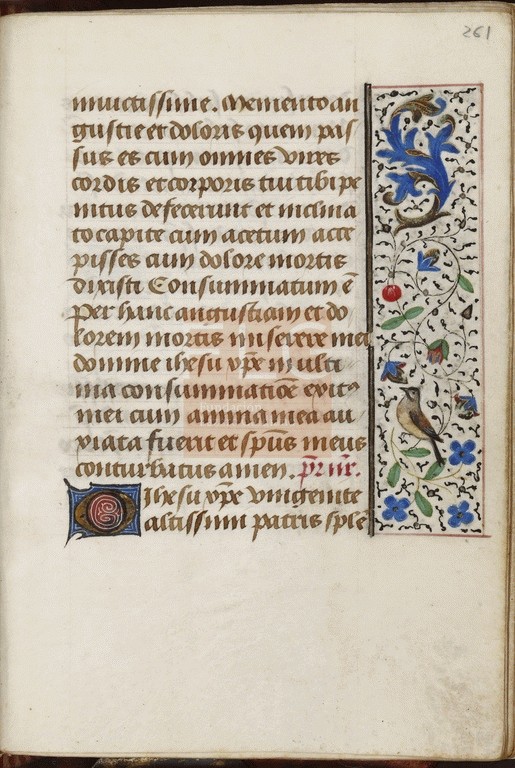 261
inuictissime. Memento an
gustie et doloris quem pas
sus es cum omnes vires
cordis et corporis tui tibi pe
nitus defecerunt et inclina
to capite cum acetum acce
pisses cum dolore mortis
dixisti Consummatum ē
Per hanc angustiam et do
lorem mortis miserere mei
domine ihesu xp̄e in ulti
ma consummatiōe exitꝰ
mei cum anima mea an
xiata fuerit et sp̄us meus
conturbatus amen. pr̄ nr̄.
O ihesu xp̄e vnigenite
altissimi patris splē